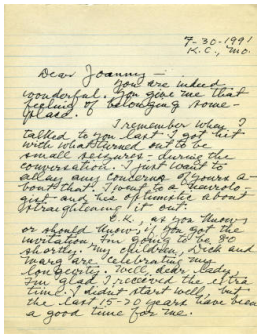 7-30-1991
K.C., Mo.
Dear Joanny —
You are indeed
wonderful. You give me that
feeling of belonging some-
place.
I remember when I
talked to you last I got hit
with what turned out to be
small seizures - during the
conversation. I just want to
allay any concerns of yours a-
bout that. I went to a neurolo-
gist and he's optimistic about
straightening it out.
O.K., as you know,
or should know, if you got the
invitation I'm going to be 80
shortly. My children, Rick and
Marg are celebrating my
longevity. Well, dear lady,
I'm glad I received the extra
time. I didn't start well, but
the last 15-20 years have been
a good time for me.